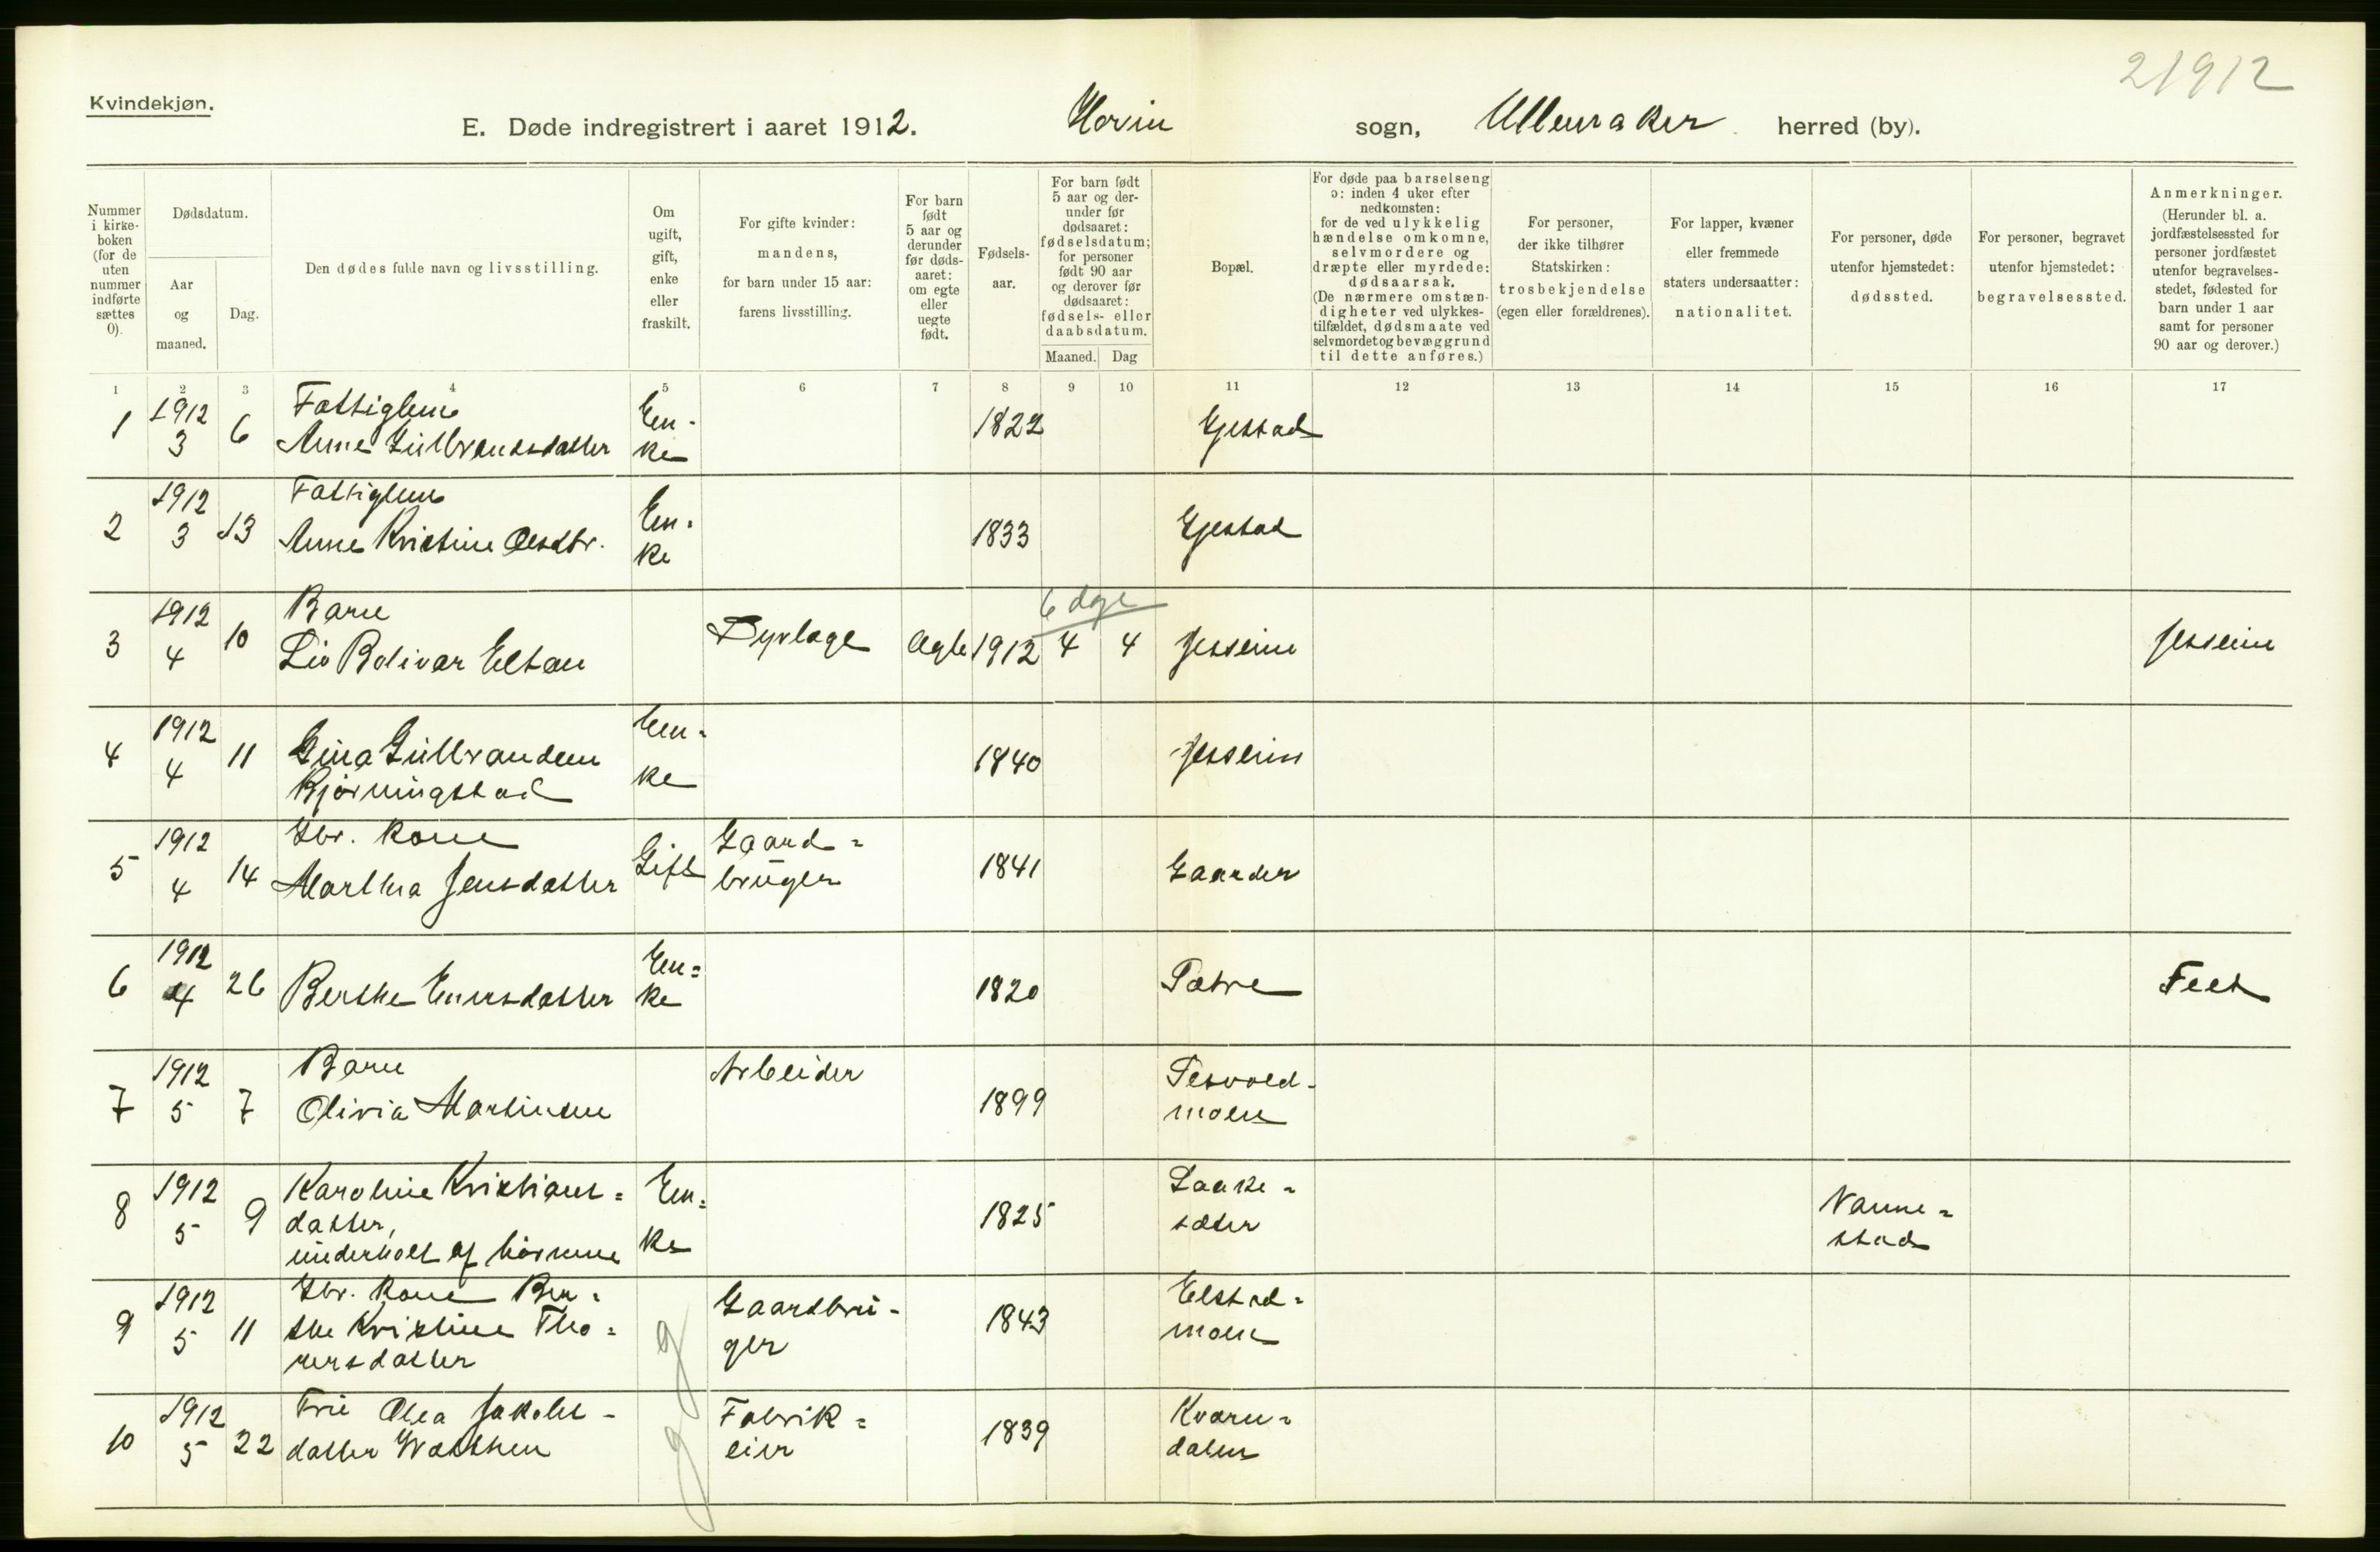 21912
Kvindekjøn.
E. Døde indregistrert i aaret 1912. Hovin sogn, Ullensaker herred (by).
Nummer i kirkeboken (for de uten nummer indførte sættes 0).
Dødsdatum.
Aar og maaned.
Dag.
Den dødes fulde navn og livsstilling.
Om ugift, gift, enke eller fraskilt.
For gifte kvinder: mandens, for barn under 15 aar: farens livsstilling.
For barn født 5 aar og derunder før dødsaaret: om egte eller uegte født.
Fødselsaar.
For barn født 5 aar og derunder før dødsaaret: fødselsdatum; for personer født 90 aar og derover før dødsaaret: fødsels- eller daabsdatum.
Maaned. Dag
Bopæl.
For døde paa barselseng ɔ: inden 4 uker efter nedkomsten: for de ved ulykkelig hændelse omkomne, selvmordere og dræpte eller myrdede: dødsaarsak. (De nærmere omstændigheter ved ulykkestilfældet, dødsmaate ved selvmordet og bevæggrund til dette anføres.)
For personer, der ikke tilhører Statskirken: trosbekjendelse (egen eller forældrenes).
For lapper, kvæner eller fremmede staters undersaatter: nationalitet.
For personer, døde utenfor hjemstedet: dødssted.
For personer, begravet utenfor hjemstedet: begravelsessted.
Anmerkninger. (Herunder bl. a. jordfæstelsessted for personer jordfæstet utenfor begravelsesstedet, fødested for barn under 1 aar samt for personer 90 aar og derover.)
1 2 3 4 5 6 7 8 9 10 11 12 13 14 15 16 17
1 1912 3 6 Fattiglem Anne Gulbrandsdatter Enke 1822 Gjestad
2 1912 3 13 Fattiglem Anne Kristine Olsdtr. Enke 1833 Gjestad
6 dge
3 1912 4 10 Barn Liv Bolivar Eltan Dyrlæge Ægte 1912 4 4 Jesseim Jesseim
4 1912 4 11 Gina Gulbrandsen Bjørningstad Enke 1840 Jesseim
5 1912 4 14 Gbr. kone Marthea Jensdatter Gift Gaardbruger 1841 Gaarder
6 1912 4 26 Berthe Enersdatter Enke 1820 Sætre Feet
7 1912 5 7 Barn Olivia Martinsen Arbeider 1899 Tesvoldmoen
8 1912 5 9 Karoline Kristiansdatter, underholt af børnene Enke 1825 Laakesæter Nannestad
9 1912 5 11 Gbr. kone Berthe Kristine Thorersdatter g Gaardbruger 1843 Elstadmoen
10 1912 5 22 Fru Olea Jakobsdatter Wæsthen g Fabrikeier 1839 Kværndalen